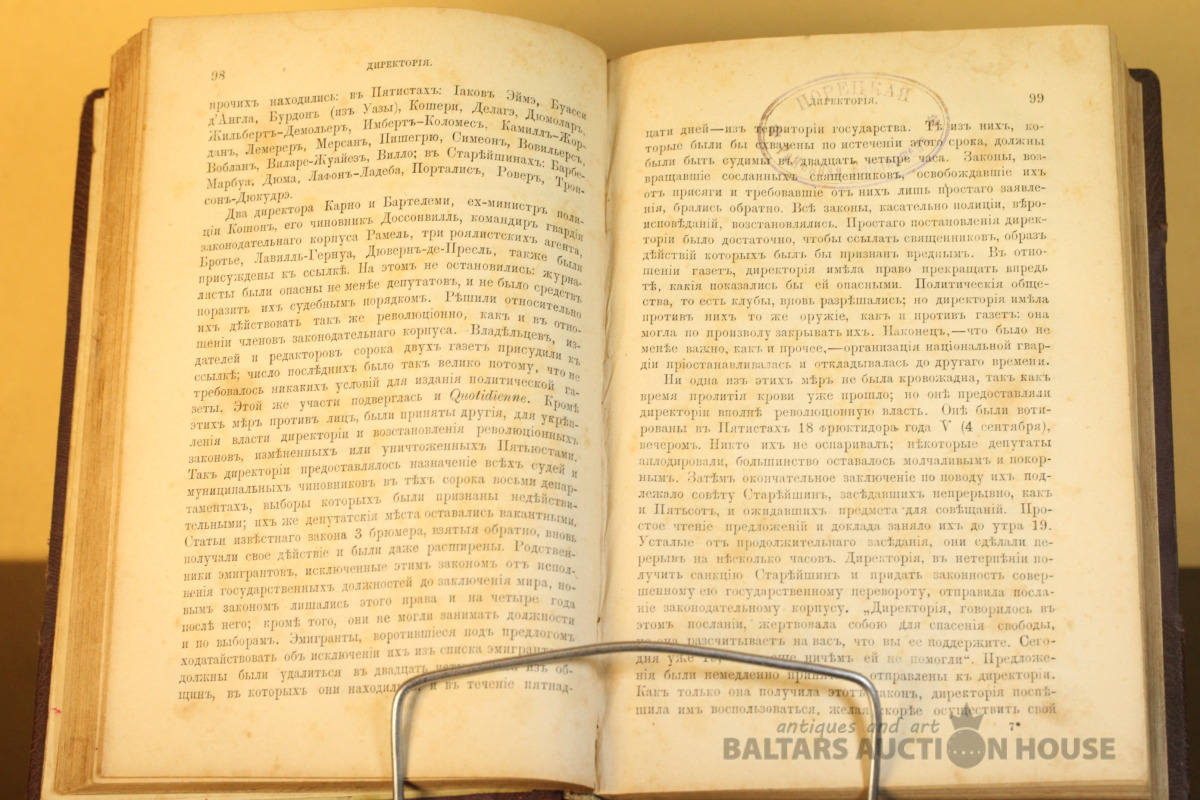 98
ДИРЕКТОРІЯ.
прочихъ находились: въ Пятистахъ: Іаковъ Эймэ, Буасси
д'Англа, Бурдонъ (изъ Уазы), Кошери, Делагэ, Дюмоларъ,
Жильбертъ-Демольеръ, Имбертъ-Коломесъ, Камиллъ-Жор-
данъ, Лемереръ, Мерсанъ, Пишегрю, Симеонъ, Вовильерсъ,
Вобланъ, Виларе-Жуайезъ, Вилло; въ Старѣйшинахъ: Барбе-
Марбуа, Дюма, Лафонъ-Ладеба, Порталисъ, Роверъ, Трон-
сонъ-Дюкудрэ.
Два директора Карно и Бартелеми, ех-министръ поли-
ціи Кошонъ, его чиновникъ Доссонвилль, командиръ гвардіи
законодательнаго корпуса Рамель, три роялистскихъ агента,
Бротье, Лавилль-Гернуа, Дювернъ-де-Пресль, также были
присуждены къ ссылкѣ. На этомъ не остановились: журна-
листы были опасны не менѣе депутатовъ, и не было средствъ
поразить ихъ судебнымъ порядкомъ. Рѣшили относительно
ихъ дѣйствовать такъ же революціонно, какъ и въ отно-
шеніи членовъ законодательнаго корпуса. Владѣльцевъ, из-
дателей и редакторовъ сорока двухъ газетъ присудили къ
ссылкѣ; число послѣднихъ было такъ велико потому, что не
требовалось никакихъ условій для изданія политической га-
зеты. Этой же участи подверглась и Quotidienne. Кромѣ
этихъ мѣръ противъ лицъ, были приняты другія, для укрѣп-
ленія власти директоріи и возстановленія революціонныхъ
законовъ, измѣненныхъ или уничтоженныхъ Пятьюстами.
Такъ директоріи предоставлялось назначеніе всѣхъ судей и
муниципальныхъ чиновниковъ въ тѣхъ сорока восьми депар-
таментахъ, выборы которыхъ были признаны недѣйстви-
тельными; ихъ же депутатскія мѣста оставались вакантными.
Статьи извѣстнаго закона 3 брюмера, взятыя обратно, вновь
получали свое дѣйствіе и были даже расширены. Родствен-
ники эмигрантовъ, исключенные этимъ закономъ отъ испол-
ненія государственныхъ должностей до заключенія мира, но-
вымъ закономъ лишались этого права и на четыре года
послѣ него; кромѣ того, они не могли занимать должности
и по выборамъ. Эмигранты, воротившіеся подъ предлогомъ
ходатайствовать объ исключеніи ихъ изъ списка
должны были удалиться въ двадцать изъ об-
щинъ, въ которыхъ они и въ теченіе пятнад-
99
ДИРЕКТОРІЯ.
ПОРЕЦКАЯ
цати дней—изъ территоріи государства. Тѣ изъ нихъ, ко-
торые были бы схвачены по истеченіи этого срока, должны
были быть судимы въ двадцать четыре часа. Законы, воз-
вращавшіе сосланныхъ священниковъ, освобождавшіе ихъ
отъ присяги и требовавшіе отъ нихъ лишь простаго заявле-
нія, брались обратно. Всѣ законы, касательно полиціи, вѣро-
исповѣданій, возстановлялись. Простаго постановленія дирек-
торіи было достаточно, чтобы ссылать священниковъ, образъ
дѣйствій которыхъ былъ бы признанъ вреднымъ. Въ отно-
шеніи газетъ, директорія имѣла право прекращать впредь
тѣ, какія показались бы ей опасными. Политическія обще-
ства, то есть клубы, вновь разрѣшались; но директорія имѣла
противъ нихъ то же оружіе, какъ и противъ газетъ: она
могла по произволу закрывать ихъ. Наконецъ,—что было не
менѣе важно, какъ и прочее,—организація національной гвар-
діи пріостанавливалась и откладывалась до другаго времени.
Ни одна изъ этихъ мѣръ не была кровожадна, такъ какъ
время пролитія крови уже прошло; но онѣ предоставляли
директоріи вполнѣ революціонную власть. Онѣ были воти-
рованы въ Пятистахъ 18 фрюктидора года V (4 сентября),
вечеромъ. Никто ихъ не оспаривалъ; нѣкоторые депутаты
аплодировали, большинство оставалось молчаливымъ и покор-
нымъ. Затѣмъ окончательное заключеніе по поводу ихъ под-
лежало совѣту Старѣйшинъ, засѣдавшихъ непрерывно, какъ
и Пятьсотъ, и ожидавшихъ предмета для совѣщаній. Про-
стое чтеніе предложеній и доклада заняло ихъ до утра 19.
Усталые отъ продолжительнаго засѣданія, они сдѣлали пе-
рерывъ на нѣсколько часовъ. Директорія, въ нетерпѣніи по-
лучить санкцію Старѣйшинъ и придать законность совер-
шенному ею государственному перевороту, отправила посла-
ніе законодательному корпусу. „Директорія, говорилось въ
этомъ посланіи, жертвовала собою для спасенія свободы,
но она разсчитываетъ на васъ, что вы ее поддержите. Сего-
дня уже ничѣмъ ей не помогли“. Предложе-
нія были немедленно отправлены къ директоріи.
Какъ только она получила этотъ законъ, директорія поспѣ-
шила имъ воспользоваться, желая скорѣе осуществить свой
7*
antiques and art
BALTARS AUCTION HOUSE